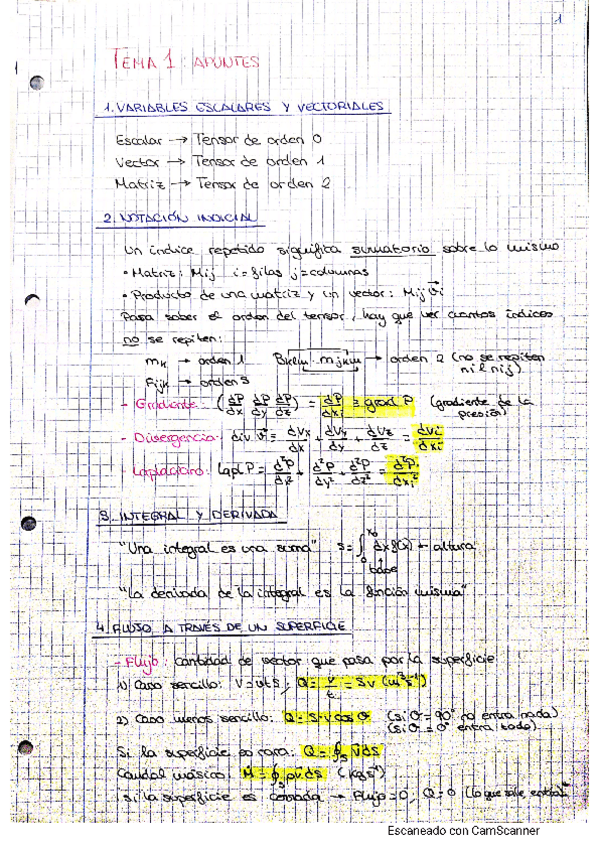 1
TEMA 1: APUNTES
1. VARIABLES ESCALARES Y VECTORIALES
Escalar → Tensor de orden 0
Vector → Tensor de orden 1
Matriz → Tensor de orden 2
2. NOTACIÓN INDICIAL
Un índice repetido significa sumatorio sobre lo mismo
• Matriz: Mij i=filas j=columnas
• Producto de una matriz y un vector: Mij v⃗i
Para saber el orden del tensor, hay que ver cuantos índices
no se repiten:
mk → orden 1 Bklm · mjkm → orden 2 (no se repiten
Fijk → orden 3 ni l ni j)
- Gradiente (dP/dx dP/dy dP/dz) = dP/dxi = grad P (gradiente de la
presión)
- Divergencia: div v⃗ = dVx/dx + dVy/dy + dVz/dz = dVi/dxi
- Laplaciano: Lapl P = d²P/dx² + d²P/dy² + d²P/dz² = d²P/dxi²
3. INTEGRAL Y DERIVADA
"Una integral es una suma" S = ∫₀^x₀ dx f(x) ← altura
base
"La derivada de la integral es la función misma"
4. FLUJO A TRAVÉS DE UN SUPERFICIE
- Flujo: Cantidad de vector que pasa por la superficie
1) Caso sencillo: V=vtS; Q = V/t = Sv (m³s⁻¹)
2) Caso menos sencillo: Q = S·v cos θ (si θ = 90° no entra nada)
(si θ = 0° entra todo)
Si la superficie es rara: Q = ∮s v⃗ ds
Caudal másico: Ṁ = ∮s ρv⃗ ds (kg s⁻¹)
Si la superficie es cerrada → Flujo=0, Q=0 (lo que sale, entra)
Escaneado con CamScanner